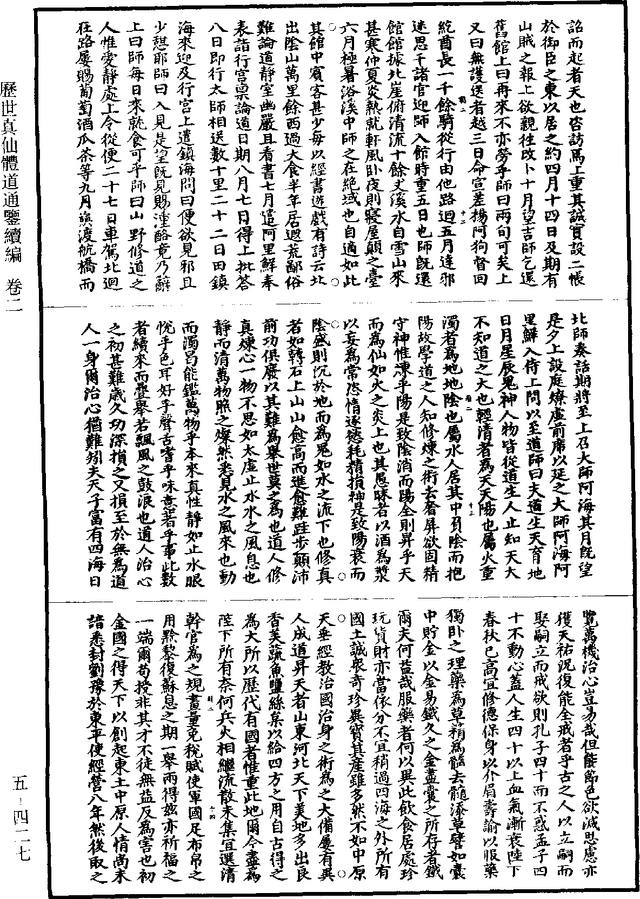 歷世真仙體道通鑒續編 卷二
五－四二七
詔而起者天也咨訪焉上重其誠實設二帳
於御臣之東以居之約四月十四日及期有
山賊之報上欲親往改卜十月望吉師乞還
舊館上曰再來不亦勞乎師曰兩旬可矣上
又曰無護送者越三日命宣差楊阿狗督回
紇酋長一千餘騎從行由他路迴五月達邪
迷思干諸官迎師入館時重五日也師既還
館館據北崖俯清流十餘丈溪水自雪山來
甚寒仲夏炎熱就軒風卧夜則寢屋顛之臺
六月極暑浴溪中師之在絕域也自適如此
其館中賓客甚少每以經書遊戲有詩云北
出陰山萬里餘西過大食半年居遐荒鄙俗
難論道靜室幽嚴且看書七月遣阿里鮮奉
表詣行宮禀論道日期八月七日得上批荅
八日即行太師相送數十里二十二日田鎮
海來迎及行宮上遣鎮海問曰便欲見邪且
少憩邪師曰入見是望既見賜湩酪竟乃辭
上曰師每日來就食可乎師曰山野修道之
人惟愛靜處上令從便二十七日車駕北迴
在路屢賜葡萄酒瓜茶等九月旣渡航橋而
北師奏話期將至上召大師阿海其月既望
是夕上設庭燎虛前席以延之大師阿海阿
里鮮入侍上問以至道師曰夫道生天育地
日月星辰鬼神人物皆從道生人止知天大
不知道之大也輕清者為天天陽也屬火重
濁者為地地陰也屬水人居其中負陰而抱
陽故學道之人知修煉之術去奢屏欲固精
守神惟煉乎陽是致陰消而陽全則昇乎天
而為仙如火之炎上也其愚昧者以酒為漿
以妄為常恣情逐慾耗精損神是致陽衰而
陰盛則沉於地而為鬼如水之流下也修真
者如轉石上山愈高而進愈難跬步顛沛
前功俱廢以其難為舉世莫之為也道人修
真煉心一物不思如太虛止水水之風息也
靜而清萬物照之燦然悉見水之風來也動
而濁曷能鑑萬物乎本來真性靜如止水眼
悅乎色耳好乎聲舌嗜乎味意著乎事此數
者續來而疊舉若飄風之鼓浪也道人治心
之初甚難歲久功深損之又損至於無為道
人一身爾治心猶難矧夫天子富有四海日
覽萬機治心豈易哉但能節色欲減思慮亦
獲天祐況復能全戒者乎古之人以立嗣而
娶嗣立而戒欲則孔子四十而不惑孟子四
十不動心蓋人生四十以上血氣漸衰陛下
春秋已高宜修德保身以介眉壽諭以服藥
獨卧之理藥為草精為髓去髓添草譬如囊
中貯金以金易鐵久之金盡囊之所存者鐵
爾夫何益哉服藥者何以異此飲食居處珍
玩貨財亦當依分不宜稍過四海之外所有
國土誠眾奇珍異寶其產雖多然不如中原
天垂經教治國治身之術為之大備屢有異
人成道昇天者山東河北天下美地多出良
香美蔬魚鹽絲枲以給四方之用自古得之
為大所以歷代有國者惟重此地爾今盡為
陛下所有奈何兵火相繼流散未集宜選清
幹官為之規畫量免稅賦使軍國足布帛之
用黔黎復蘇息之期一舉兩得茲亦祈福之
一端爾苟授非其才不徒無益反為害也初
金國之得天下以創起東土中原人情尚未
諳悉封劉豫於東平使經營八年然後取之